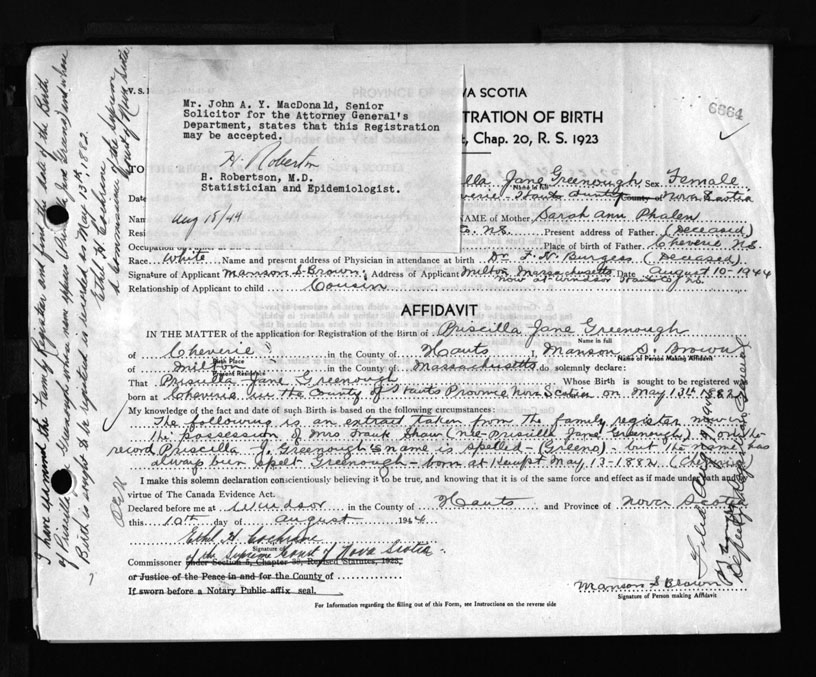 V. S.
VA SCOTIA
6664
Mr. John A. Y. MacDonald, Senior
Solicitor for the Attorney General's
Department, states that this Registration
may be accepted.
H. Robertson
H. Robertson, M.D.
Statistician and Epidemiologist.
Aug 15/44
TRATION OF BIRTH
, Chap. 20, R. S. 1923
TO
lla Jane Greenough Sex Female
Name in full
Date
everie Hants County County of Nova Scotia
Nam
NAME of Mother Sarah Ann Phalen
Resi
N.S. Present address of Father (Deceased)
Occupation
Place of birth of Father Cheverie N.S.
Race White Name and present address of Physician in attendance at birth Dr. F. N. Burgess (Deceased)
Signature of Applicant Manson S. Brown Address of Applicant Milton Massachusetts Date August 10-1944
now at Windsor Hants Co. N.S.
Relationship of Applicant to child Cousin
AFFIDAVIT
IN THE MATTER of the application for Registration of the Birth of Priscilla Jane Greenough
Name in full
of Cheverie in the County of Hants I, Manson S. Brown
Birth Place
Name of Person making Affidavit
of Milton in the County of Massachusetts do solemnly declare:
Present Residence
That Priscilla Jane Greenough Whose Birth is sought to be registered was
born at Cheverie in the County of Hants Province Nova Scotia on May 13th 1882
My knowledge of the fact and date of such Birth is based on the following circumstances:
The following is an extract taken from the family register now in
the possession of Mrs Frank Shaw (nee Priscilla Jane Greenough) on the
record Priscilla J. Greenough's name is spelled - (Greeno) - but the name has
always been spelt Greenough - born at Kempt May 13-1882 (Cheverie)
I make this solemn declaration conscientiously believing it to be true, and knowing that it is of the same force and effect as if made under oath and
virtue of The Canada Evidence Act.
Declared before me at Windsor in the County of Hants and Province of Nova Scotia
this 10th day of August 1944
Ethel H Cochrane
Signature of
of the Supreme Court of Nova Scotia
Commissioner under Section 5, Chapter 38, Revised Statutes, 1923,
or Justice of the Peace in and for the County of
If sworn before a Notary Public affix seal.
Manson S Brown
Signature of Person making Affidavit
For Information regarding the filling out of this Form, see Instructions on the reverse side
I have examined the Family Register and find the date of the Birth
of Priscilla Jane Greenough whose name appears (Priscilla Jane Greeno) and whose
Birth is sought to be registered is recorded as May 13th, 1882.
Ethel H Cochrane
A Commissioner of the Supreme
Court of Nova Scotia
Filed Aug
Deputy Registrar General